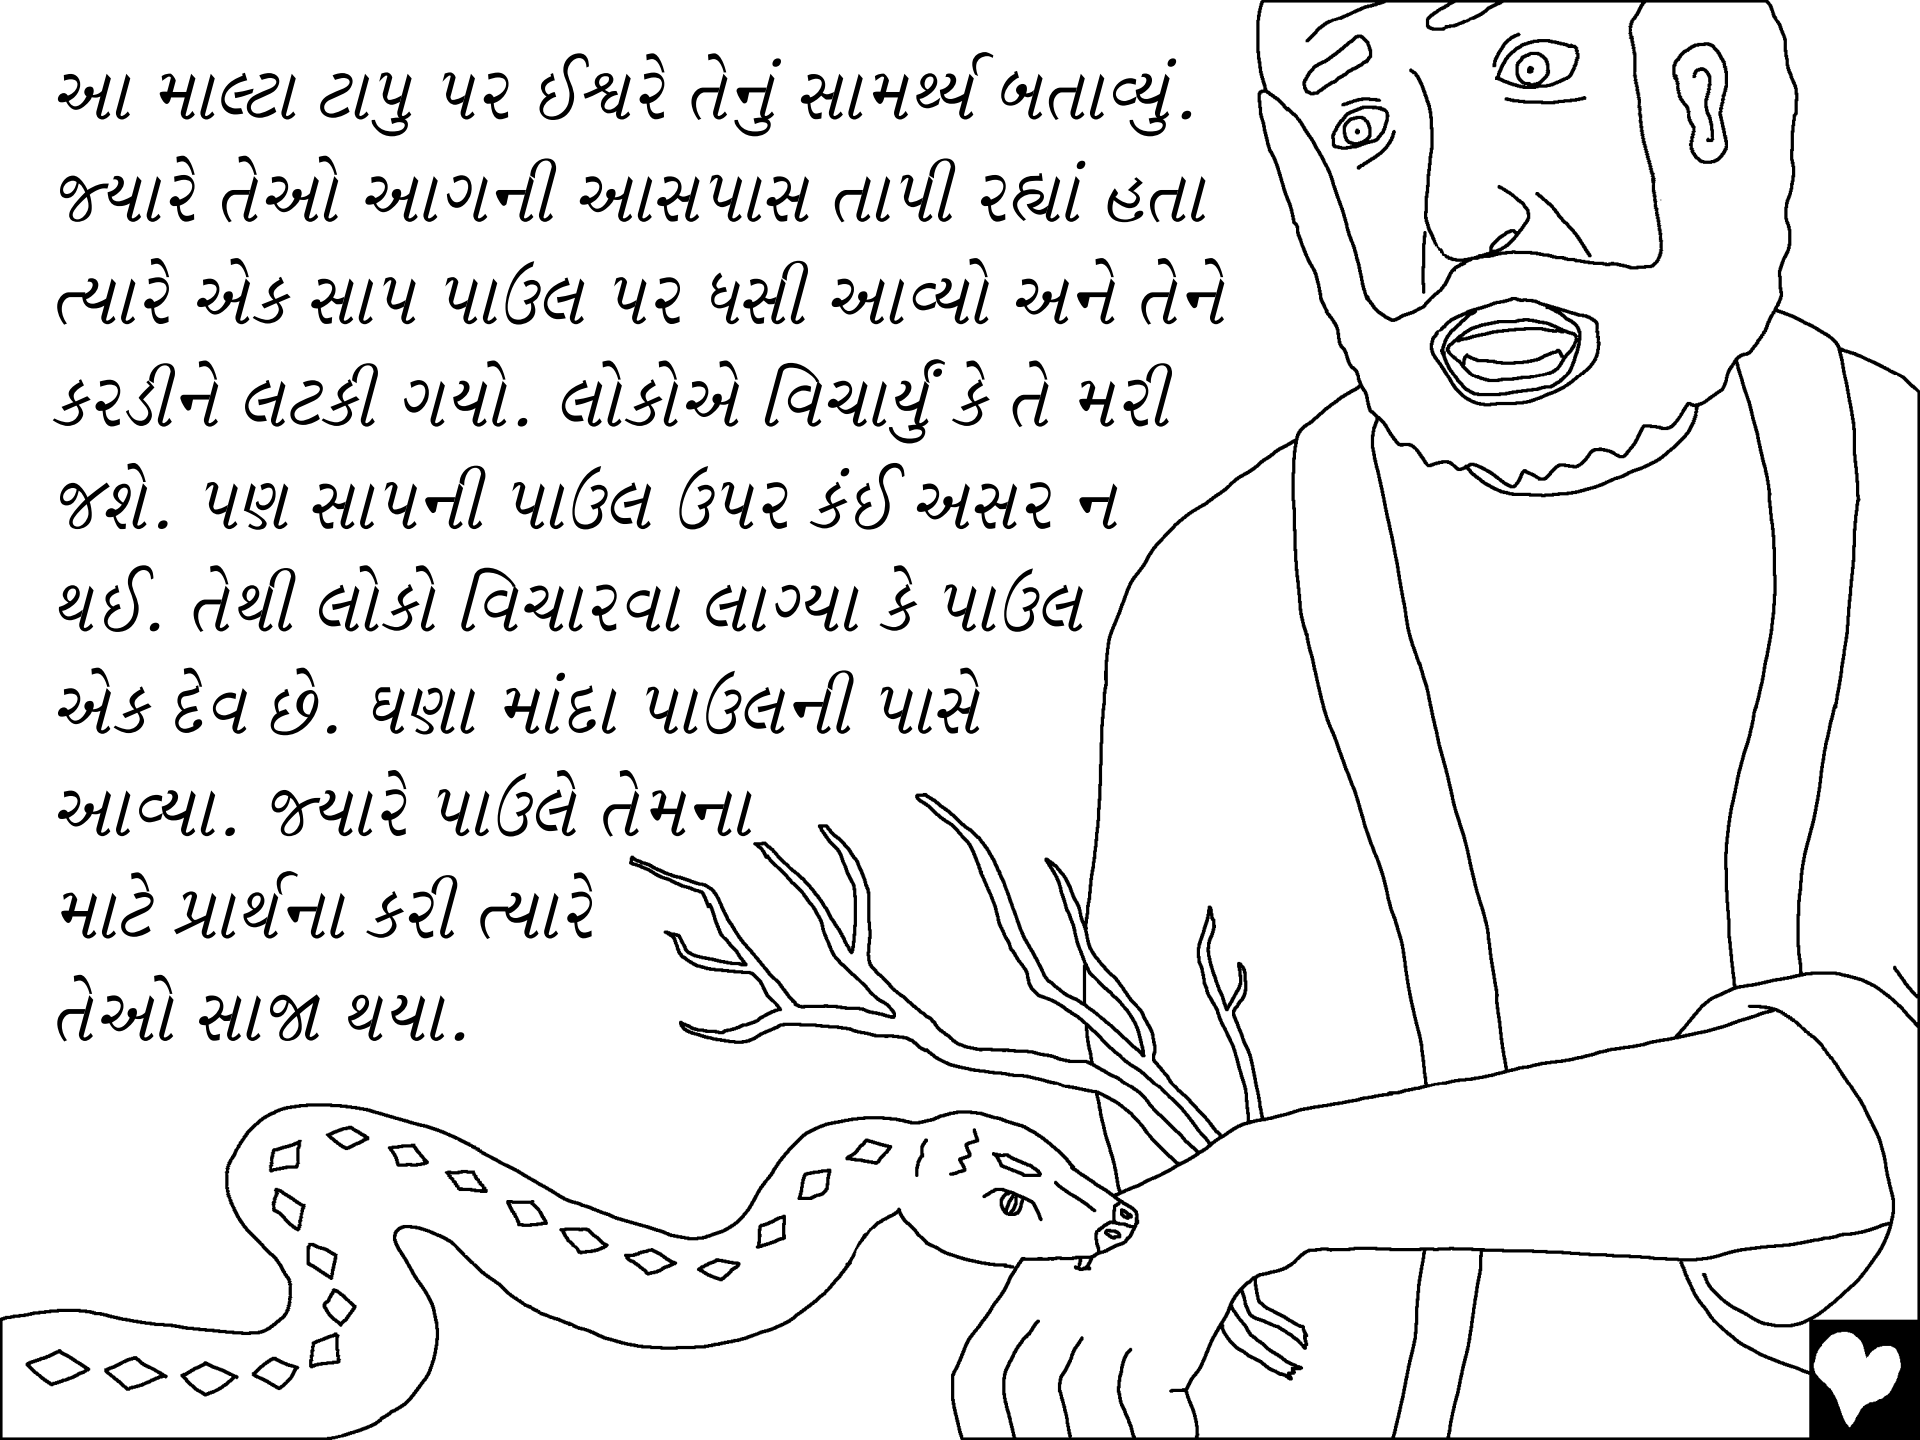 આ માલ્ટા ટાપુ પર ઈશ્વરે તેનું સામર્થ્ય બતાવ્યું.
જ્યારે તેઓ આગની આસપાસ તાપી રહ્યાં હતા
ત્યારે એક સાપ પાઉલ પર ધસી આવ્યો અને તેને
કરડીને લટકી ગયો. લોકોએ વિચાર્યું કે તે મરી
જશે. પણ સાપની પાઉલ ઉપર કંઈ અસર ન
થઈ. તેથી લોકો વિચારવા લાગ્યા કે પાઉલ
એક દેવ છે. ઘણા માંદા પાઉલની પાસે
આવ્યા. જ્યારે પાઉલે તેમના
માટે પ્રાર્થના કરી ત્યારે
તેઓ સાજા થયા.